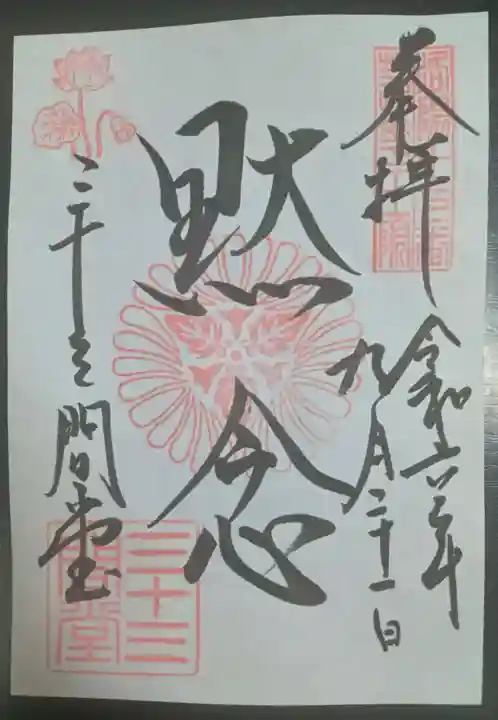 奉拝
令和六年
九月二十一日
黙念
三十三間堂
三十三
間堂